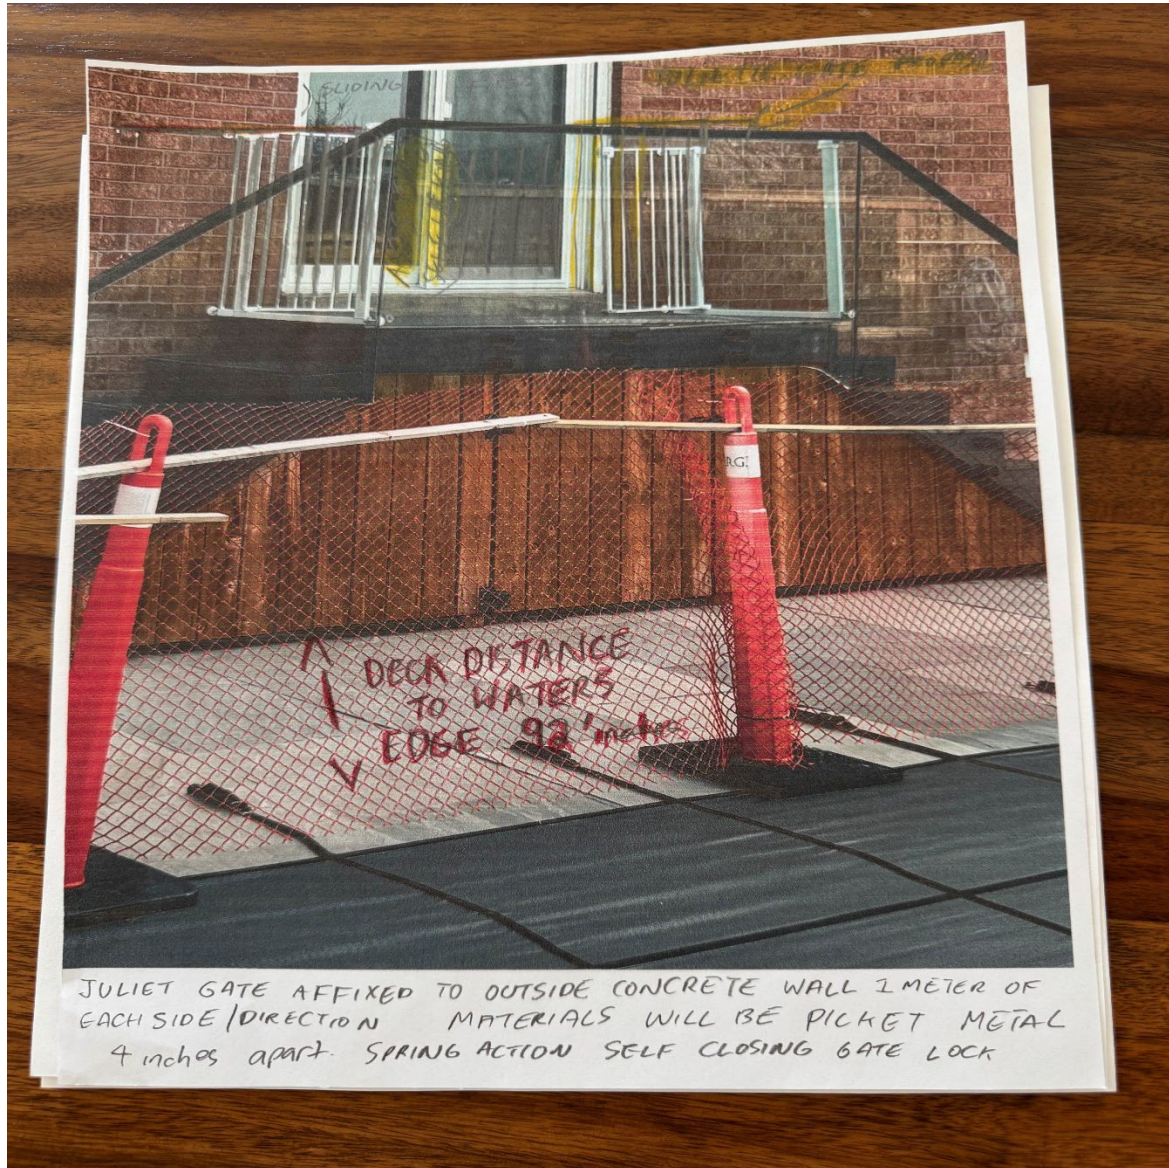 SLIDING
RG
DECK DISTANCE
TO WATERS
EDGE 92 inches
JULIET GATE AFFIXED TO OUTSIDE CONCRETE WALL 1 METER OF
EACH SIDE/DIRECTION MATERIALS WILL BE PICKET METAL
4 inches apart. SPRING ACTION SELF CLOSING GATE LOCK